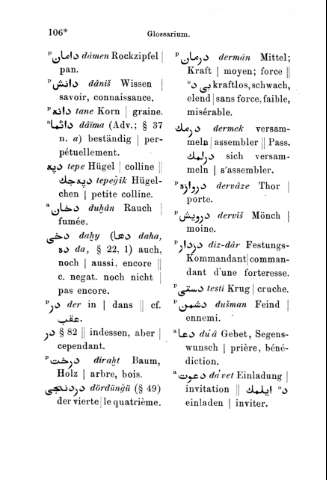 106*
Glossarium.
ᵖدامان dāmen Rockzipfel |
pan.
ᵖدانش dāniš Wissen |
savoir, connaissance.
ᵖدانه tane Korn | graine.
ᵃدائما dāïma (Adv.; § 37
n. a) beständig | per-
pétuellement.
دپه tepe Hügel | colline ||
دپه‌جك tepeǧik Hügel-
chen | petite colline.
ᵃدخان duḫān Rauch |
fumée.
دخى daḫy (دها daha,
ده da, § 22, 1) auch,
noch | aussi. encore ||
c. negat. noch nicht |
pas encore.
ᵖدر der in | dans || cf.
عقب.
در § 82 || indessen, aber |
cependant.
ᵖدرخت diraḫt Baum,
Holz | arbre, bois.
دردنجى dördünǧü (§ 49)
der vierte | le quatrième.
ᵖدرمان dermān Mittel;
Kraft | moyen; force ||
بى د° kraftlos, schwach,
elend | sans force, faible,
misérable.
درمك dermek versam-
meln | assembler || Pass.
درلمك sich versam-
meln | s'assembler.
ᵖدروازه dervāze Thor |
porte.
ᵖدرويش dervīš Mönch |
moine.
ᵖدزدار diz-dār Festungs-
Kommandant | comman-
dant d'une forteresse.
ᵖدستى testi Krug | cruche.
ᵖدشمن dušman Feind |
ennemi.
ᵃدعا du'ā Gebet, Segens-
wunsch | prière, béné-
diction.
ᵃدعوت da'vet Einladung |
invitation || د° ايلمك
einladen | inviter.